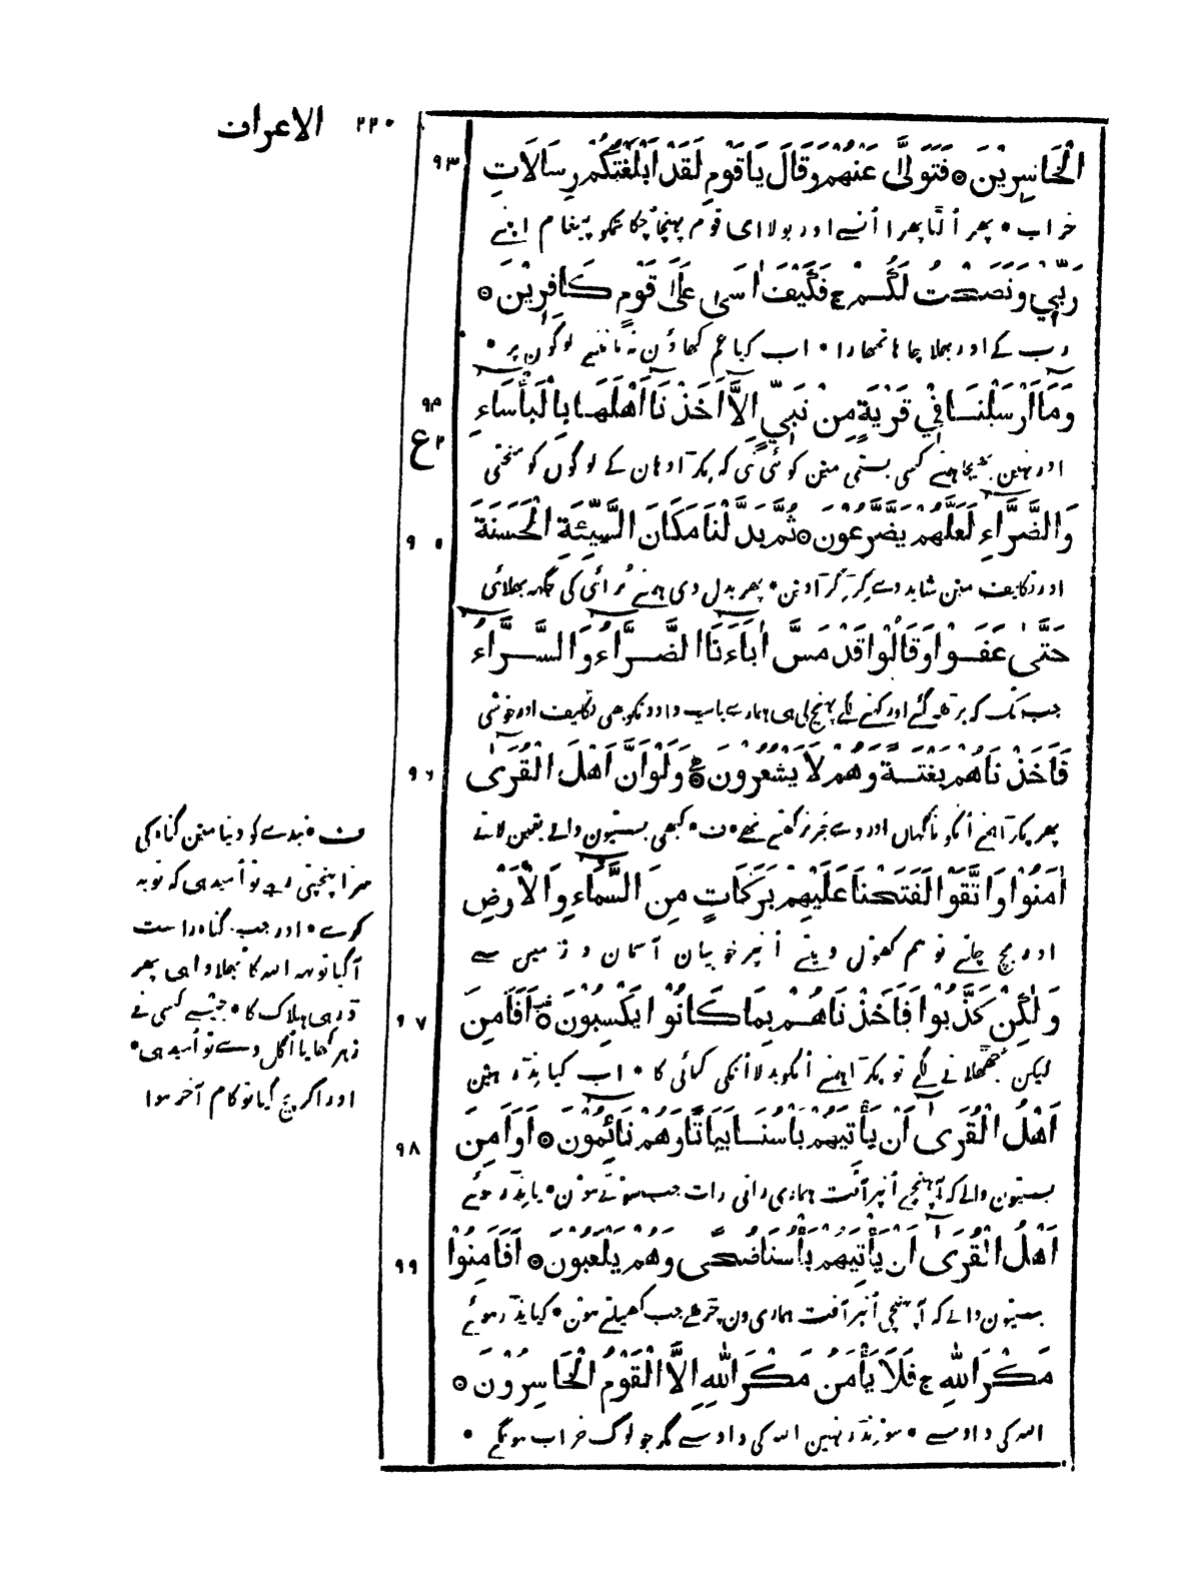 الاعراف ۲۲۰
۹۳ الْخَاسِرِيْنَ ۞ فَتَوَلَّىٰ عَنْهُمْ وَقَالَ يَا قَوْمِ لَقَدْ اَبْلَغْتُكُمْ رِسَالَاتِ
خراب • پھر اُلٹا پھرا اُنسے اور بولا ای قوم پہنچا چکا تمکو پیغام اپنے
رَبِّيْ وَنَصَحْتُ لَكُمْ ج فَكَيْفَ اٰسٰى عَلَىٰ قَوْمٍ كَافِرِيْنَ ۞
رب کے اور بھلا چاہا تمھارا • اب کیا غم کھاؤن نہ ماننے لوگون پر •
۹۴ وَمَا اَرْسَلْنَا فِيْ قَرْيَةٍ مِنْ نَبِيٍّ اِلَّا اَخَذْنَا اَهْلَهَا بِالْبَأْسَاءِ
ع ۲
اور نہین بھیجا ہمنے کسی بستی مین کوئی نبی کہ پکڑا وہان کے لوگون کو سختی
وَالضَّرَّاءِ لَعَلَّهُمْ يَضَّرَّعُوْنَ ۞ ثُمَّ بَدَّلْنَا مَكَانَ السَّيِّئَةِ الْحَسَنَةَ
۹۵
اور تکلیف مین شاید وے گڑگڑاوین • پھر بدل دی ہمنے بُرائی کی جگہہ بھلائی
حَتّٰى عَفَوْا وَقَالُوْا قَدْ مَسَّ اٰبَاءَنَا الضَّرَّاءُ وَالسَّرَّاءُ
جب تک کہ بڑھ گئے اور کہنے لگے پہنچ لی ہی ہمارے باپ دادونکو بھی تکلیف اور خوشی
۹۶ فَاَخَذْنَاهُمْ بَغْتَةً وَهُمْ لَا يَشْعُرُوْنَ ۞ وَلَوْ اَنَّ اَهْلَ الْقُرَىٰ
پھر پکڑا ہمنے اُنکو ناگہان اور وے خبر نرکھتے تھے • ف • کبھی بستیون والے یقین لاتے
اٰمَنُوْا وَاتَّقَوْا لَفَتَحْنَا عَلَيْهِمْ بَرَكَاتٍ مِنَ السَّمَاءِ وَالْاَرْضِ
اور بچ چلتے تو ہم کھول دیتے اُنپر خوبیان آسمان و زمین سے
۹۷ وَلٰكِنْ كَذَّبُوْا فَاَخَذْنَاهُمْ بِمَا كَانُوْا يَكْسِبُوْنَ ۞ اَفَاَمِنَ
لیکن جھٹھلانے لگے تو پکڑا ہمنے اُنکو بدلا اُنکی کمائی کا • اب کیا نڈر ہین
۹۸ اَهْلُ الْقُرَىٰ اَنْ يَأْتِيَهُمْ بَأْسُنَا بَيَاتًا وَهُمْ نَائِمُوْنَ ۞ اَوَاَمِنَ
بستیون والے کہ آ پہنچے اُنپر آفت ہماری راتی رات جب سوتے ہون • یا نڈر ہوئے
۹۹ اَهْلُ الْقُرَىٰ اَنْ يَأْتِيَهُمْ بَأْسُنَا ضُحًى وَهُمْ يَلْعَبُوْنَ ۞ اَفَاَمِنُوْا
بستیون والے کہ آ پہنچی اُنپر آفت ہماری دن چڑھے جب کھیلتے ہون • کیا نڈر ہوئے
مَكْرَ اللهِ ج فَلَا يَأْمَنُ مَكْرَ اللهِ اِلَّا الْقَوْمُ الْخَاسِرُوْنَ ۞
اللہ کی داو سے • سو نڈر نہین اللہ کی داو سے مگر جو لوگ خراب ہونگے •
ف • بندے کو دنیا مین گناہ کی
سزا پہنچتی رہے تو اُمید ہی کہ توبہ
کرے • اور جب گناہ راست
آگیا تو یہہ اللہ کا بھلاوا ہی پھر
ڈر ہی ہلاک کا • جیسے کسی نے
زہر کھایا اُگل دے تو اُمید ہی •
اور اگر پچ گیا تو کام آخر ہوا